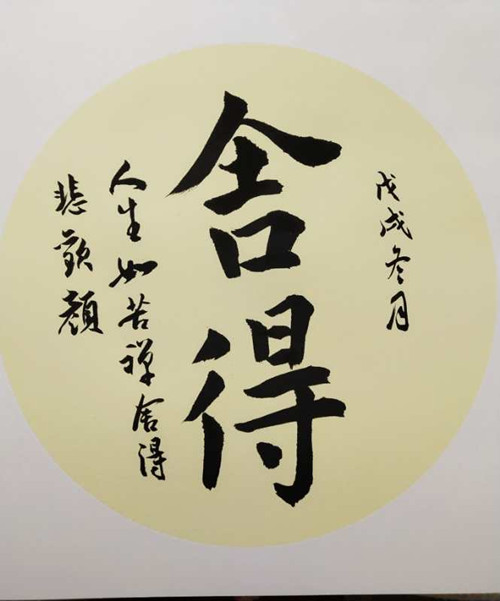 戊戌冬月
舍得
人生如苦禅舍得
悲歡顏